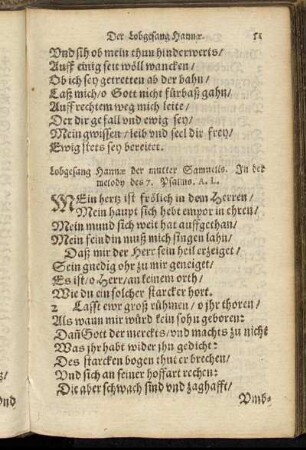 Der Lobgesang Hannæ.
51
Vnd sih ob mein thun hinderwerts/
Auff einig seit wöll wancken/
Ob ich sey getretten ab der bahn/
Laß mich/ o Gott nicht fürbaß gahn/
Auff rechtem weg mich leite/
Der dir gefall vnd ewig sey/
Mein gwissen/ leib vnd seel dir frey/
Ewig stets sey bereitet.
Lobgesang Hannæ der mutter Samuelis. In der
melody des 7. Psalms. A. L.
MEin hertz ist frölich in dem Herren/
Mein haupt sich hebt empor in ehren/
Mein mund sich weit hat auffgethan/
Mein feindin muß mich singen lahn/
Daß mir der Herr sein heil erzeiget/
Sein gnedig ohr zu mir geneiget/
Es ist/ o Herr/ an keinem orth/
Wie du ein solcher starcker hort.
2 Lasst ewr groß rühmen/ o jhr thoren/
Als wann mir würd kein sohn geboren:
Dañ Gott der merckts/ vnd machts zu nicht
Was jhr habt wider jhn gedicht:
Des starcken bogen thut er brechen/
Vnd sich an seiner hoffart rechen:
Die aber schwach sind vnd zaghafft/
Vmb-